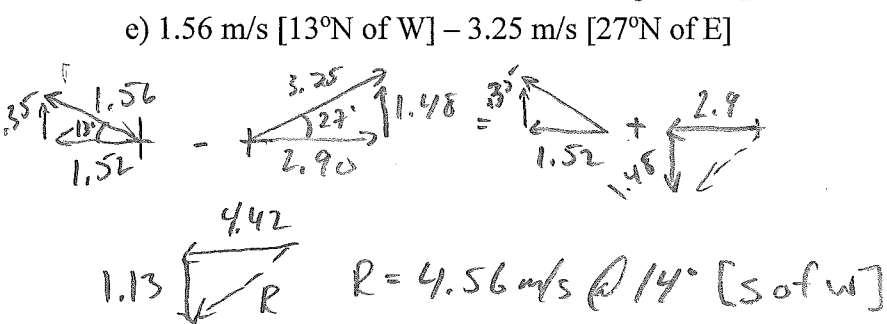 e) 1.56 m/s [13ºN of W] – 3.25 m/s [27ºN of E]
.35 1.56 13° 1.52 - 3.25 27° 1.48 2.90 = .35 1.52 + 2.9 1.48
4.42
1.13 R R = 4.56 m/s @ 14° [S of W]